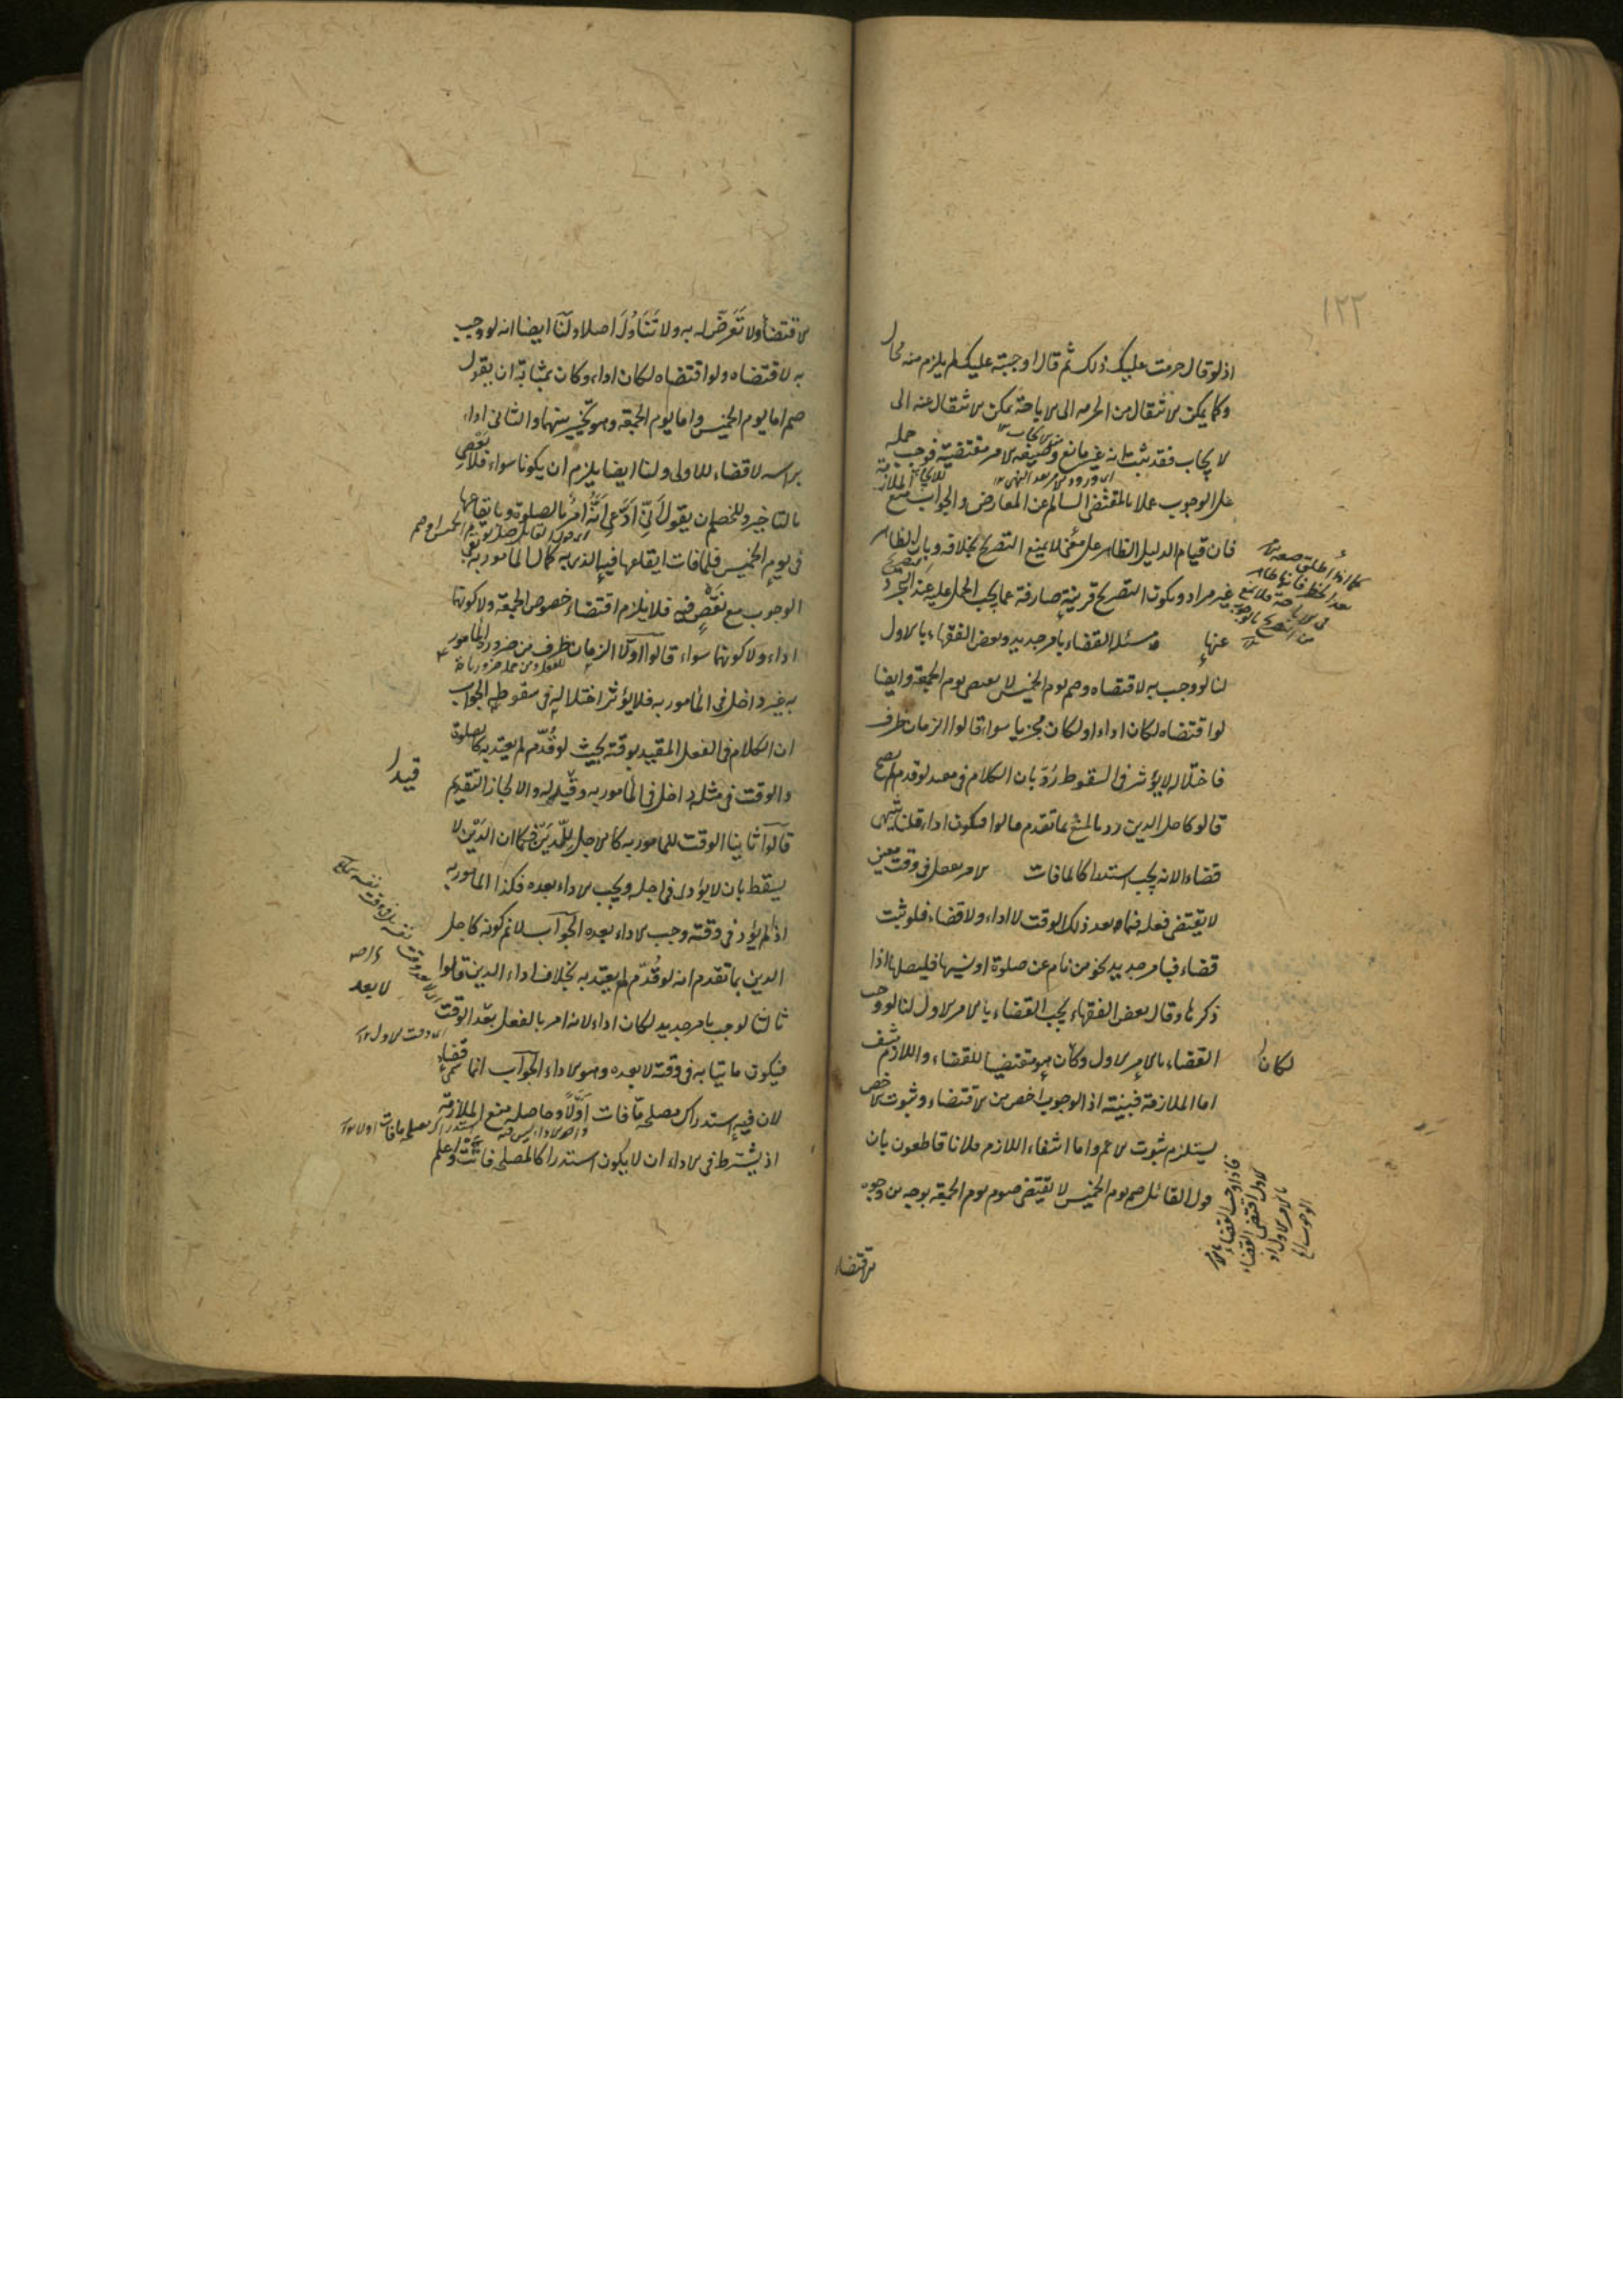 ١٢٢
اذ لو قال حرمت عليك ذلك ثم قال اوجبته عليك لم يلزم منه محال
وكما يمكن الانتقال من الحرمه الى الاباحة يمكن الانتقال عنه الى
الايجاب فقد ثبت انه غير مانع وصيغه الامر مقتضية فوجب حمله
على الوجوب عملا بالمقتضى السالم عن المعارض والجواب منع
الملازمة
فان قيام الدليل الظاهر على معنى لا يمنع التصريح بخلافه وبان الظاهر
غير مراد ويكون التصريح قرينة صارفة عما يجب الحمل عليه عند التجرد
عنها مسئلة القضاء بامر جديد وبعض الفقهاء بالاول
لنا لو وجب به لاقتضاه وصم يوم الخميس لا يقتضى يوم الجمعة وايضا
لو اقتضاه لكان اداء او لكان مجزيا سواء قالوا الزمان ظرف
فاختلاله لا يؤثر فى السقوط رد بان الكلام فى مقيد لو قدم لم يصح
قالوا كاجل الدين رد بالمنع بما تقدم قالوا فيكون اداء قلنا سمى
قضاء لانه يجب استدراكا لما فات الامر بفعل فى وقت معين
لا يقتضى فعله فيما بعد ذلك الوقت لا اداء ولا قضاء فلو ثبت
قضاء فبامر جديد نحو من نام عن صلوة او نسيها فليصلها اذا
ذكرها وقال بعض الفقهاء يجب القضاء بالامر الاول لنا لو وجب
القضاء بالامر الاول لكان هو مقتضيا للقضاء واللازم منتف
لكان
اما الملازمة فبينة اذ الوجوب اخص من الاقتضاء وثبوت الاخص
يستلزم ثبوت الاعم واما انتفاء اللازم فلانا قاطعون بان
قول القائل صم يوم الخميس لا يقتضى صوم يوم الجمعة بوجه من وجوه
الاقتضاء
الاقتضاء ولا تعرض له به ولا تناول اصلا ولنا ايضا انه لو وجب
به لاقتضاه ولو اقتضاه لكان اداء وكان بمثابة ان يقول
صم اما يوم الخميس واما يوم الجمعة وهو تخيير بينهما والثانى اداء
براسه لا قضاء للاولى ولنا ايضا يلزم ان يكونا سواء فلا يعصى
بالتاخير وللخصم ان يقول انى ادعى انه امر بالصلوة وبايقاعها
فى يوم الخميس فلما فات ايقاعها فيه الذى به كمال المامور به بقى
الوجوب مع نقص فيه فلا يلزم اقتضاء خصوص الجمعة ولا كونها
اداء ولا كونهما سواء قالوا اولا الزمان ظرف من ضرورة المامور
به غير داخل فى المامور به فلا يؤثر اختلاله فى سقوطه الجواب
ان الكلام فى الفعل المقيد بوقته بحيث لو قدم لم يعتد به كالصلوة
والوقت فى مثله داخل فى المامور به وقيد له والا لجاز التقديم
قيدا
قالوا ثانيا الوقت للمامور به كالاجل للدين فكما ان الدين لا
يسقط بان لا يؤدى فى اجله ويجب الاداء بعده فكذا المامور به
اذا لم يؤد فى وقته وجب الاداء بعده الجواب لا نم كونه كاجل
الدين بما تقدم انه لو قدم لم يعتد به بخلاف اداء الدين قالوا
ثالثا لو وجب بامر جديد لكان اداء لانه امر بالفعل بعد الوقت
فيكون ماتيا به فى وقته لا بعده وهو الاداء الجواب انما سمى قضاء
لان فيه استدراك مصلحة ما فات اولا وحاصله منع الملازمة
اذ يشترط فى الاداء ان لا يكون استدراكا لمصلحة فاتت واعلم